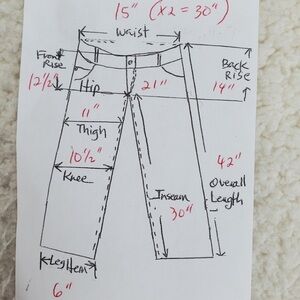 15" (x2 = 30")
waist
Front Rise
12/2"
Hip
21"
Back Rise
14"
11"
Thigh
10½"
Knee
Inseam
30"
42"
Overall Length
Leg Hem
6"